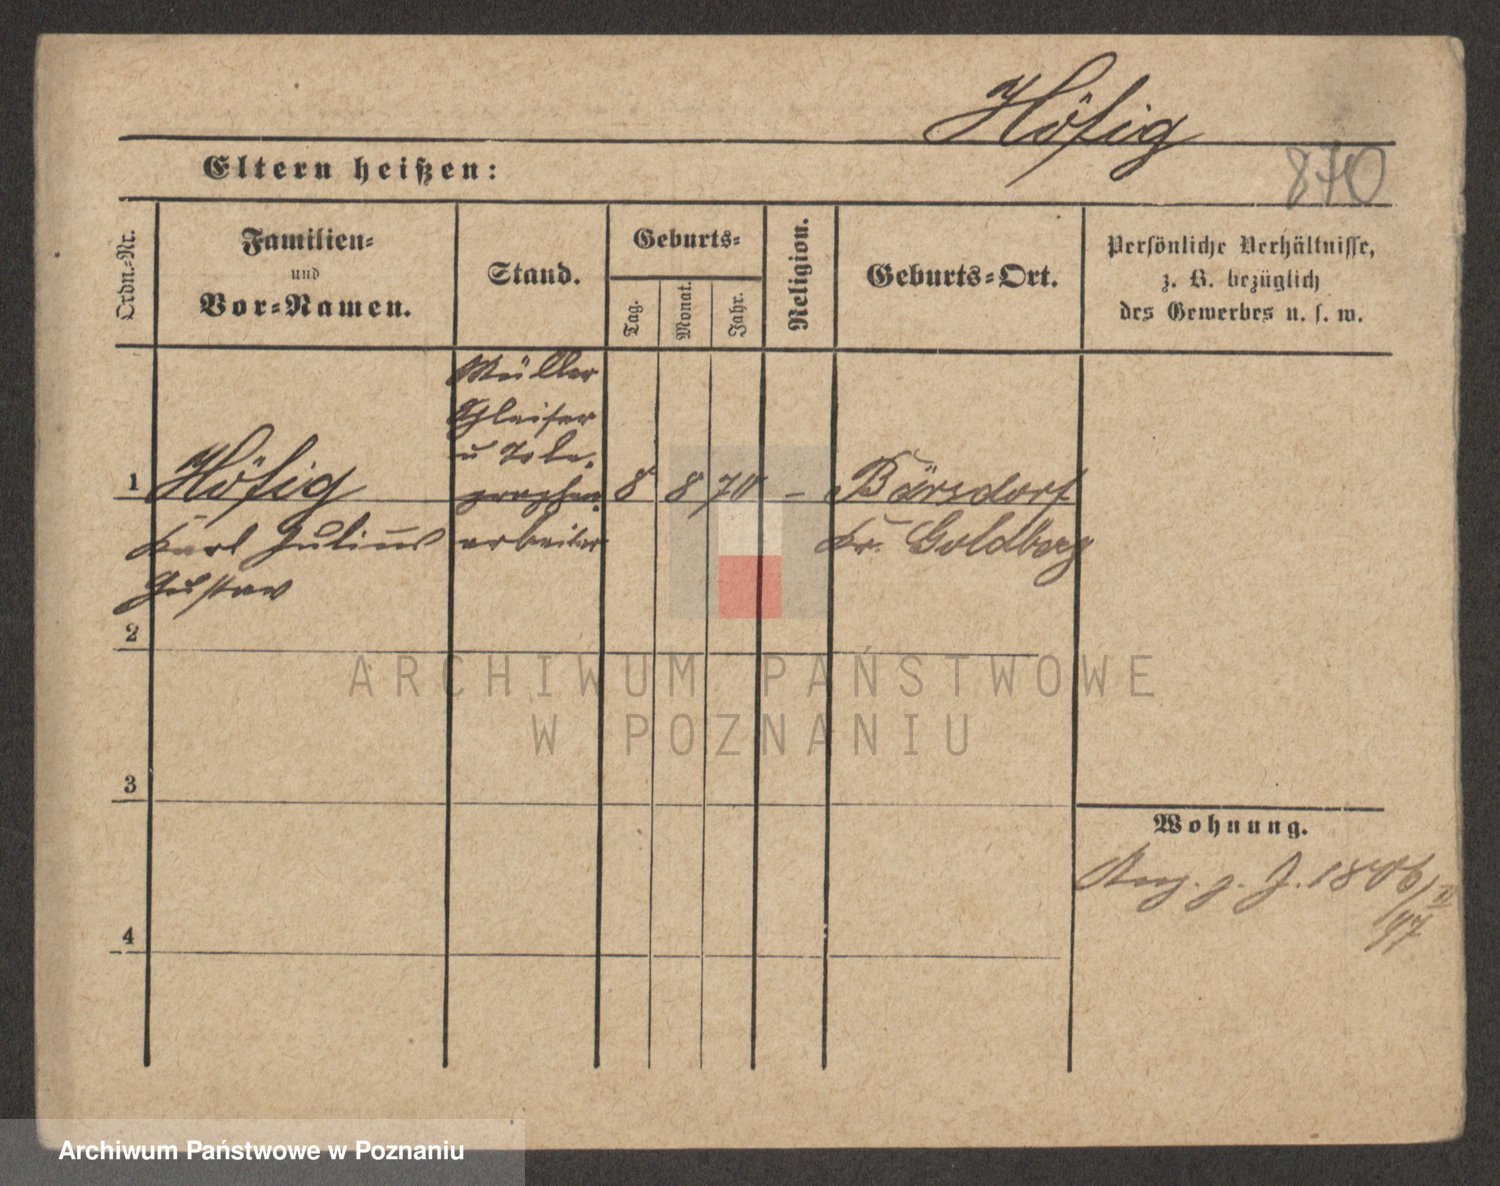 Höfig
870
Eltern heißen:
Ordn.-Nr.
Familien-
und
Vor-Namen.
Stand.
Geburts-
Tag.
Monat.
Jahr.
Religion.
Geburts-Ort.
Persönliche Verhältnisse,
z. B. bezüglich
des Gewerbes u. s. w.
Müller
Schleifer
u Tele-
1 Höfig graphen 8 8 70 - Bärsdorf
Karl Julius arbeiter Kr. Goldberg
Gustav
2
3
4
Wohnung.
97
ARCHIWUM PAŃSTWOWE
W POZNANIU
Archiwum Państwowe w Poznaniu